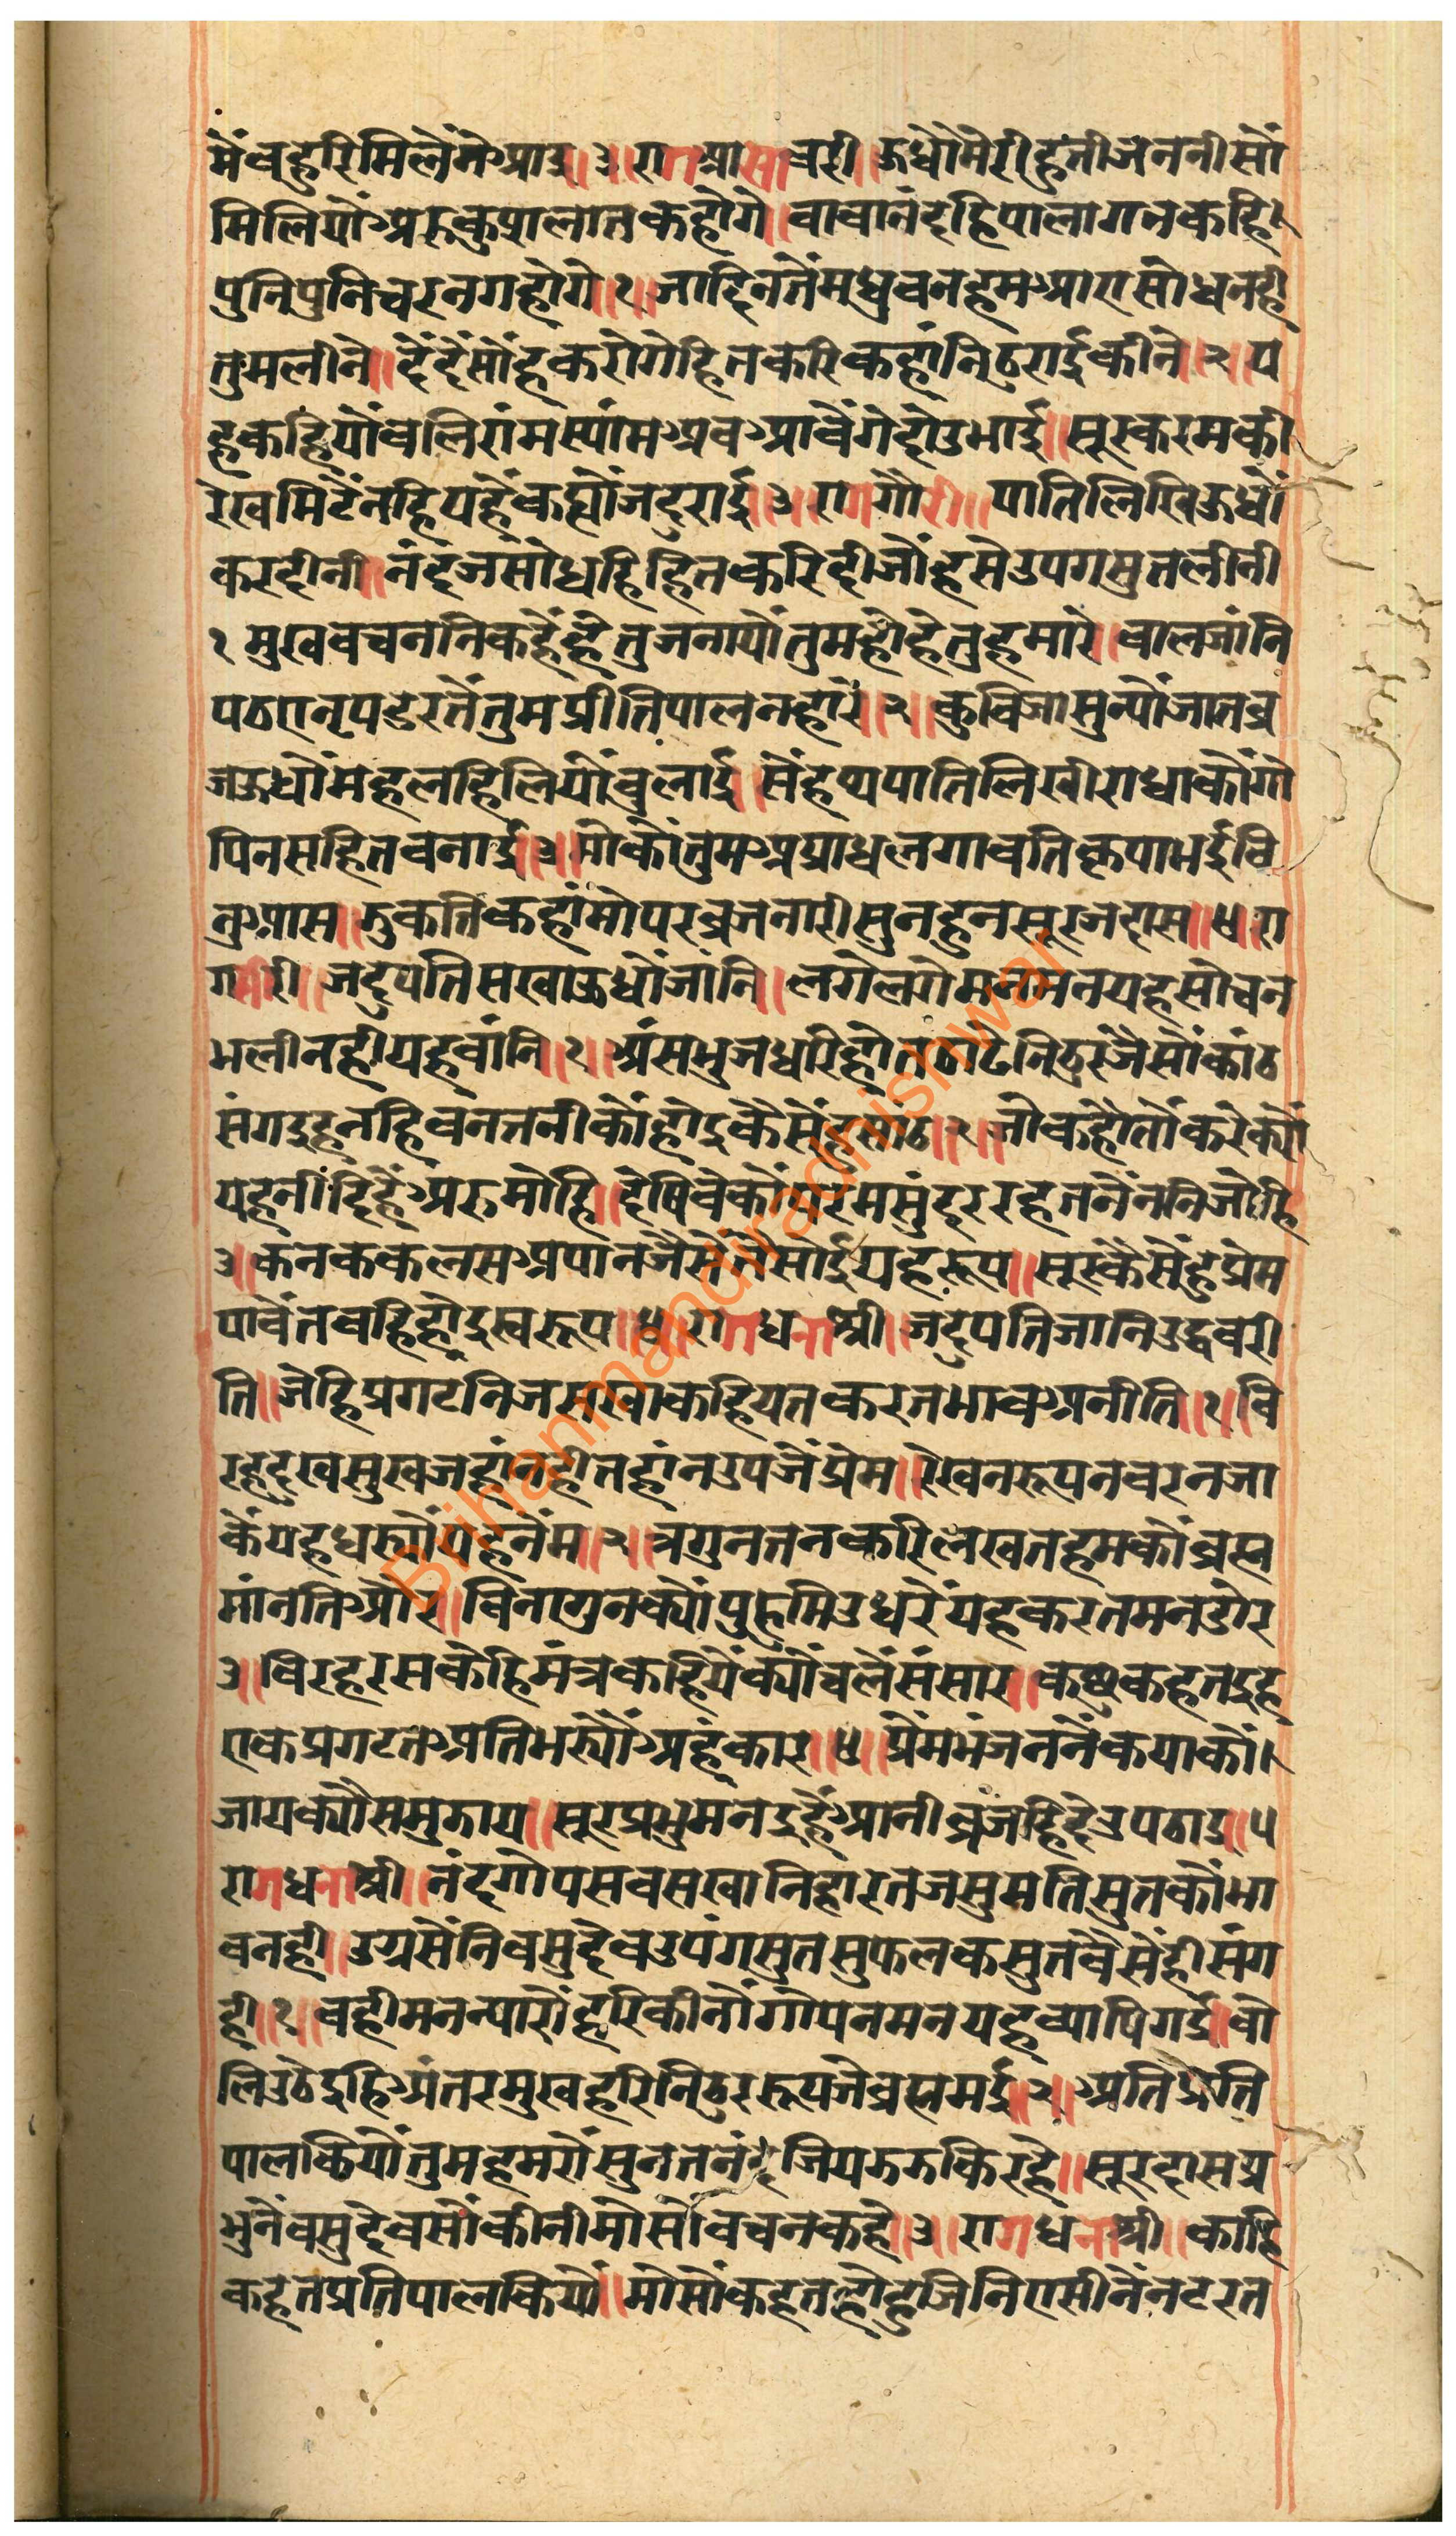 मैंवहुरिमिलेंगेआइ॥३॥रागआसावरी॥ऊधौमेरीहुतीजननीसौं
मिलियोअरुकुशलातकहोगे॥वावानंदहिपालागनकहि
पुनिपुनिचरनगहोगे॥१॥जादिनतैंमधुवनहमआएसोधनही
तुमलीने॥दैंदैंसोंहकरोगेहितकरिकहांनिठुराईकीने॥२॥य
हकहियौंवलिरांमस्यांमअवआवैंगेदोउभाई॥सूरकरमकी
रेखमिटैंनहियहैंकह्यौजदुराई॥३॥रागगौरी॥पातिलिखिऊधौं
करदीनी॥नंदजसोधहिहितकरिदीजौंहसेउपगसुतलीनी
१मुखवचननिकहैंहैतुजनायौंतुमहौहेतुहमारे॥वालजांनि
पठएनृपडेरतैंतुमप्रीतिपालनहारे॥२॥कुविजासुन्यौंजातव्र
जऊधौंमहलहिलियौंवुलाई॥सैंहथपातिलिखीराधाकौंगो
पिनसहितवनाई॥३॥मोकौंतुमअप्राधलगावतिकृपाभईवि
नुआस॥तुकतिकहांमोपरव्रजनारीसुनहुनसूरजदास॥४॥रा
गगौरी॥जदुपतिसखाऊधौंजांनि॥लगेलगेमनमनयहसोचन
भलीनहीयहवांनि॥१॥अंसभुजधरिहोतठाढेनिठुरजैसौंकांठ
संगइहनहिवनतनीकौंहोइकैसैंहूसांठ॥२॥जोकहौतौकरेक्यौं
यहनींदिहैंअरुमोहि॥देषिवेकौंपरमसुंदररहतनैंननिजोहि
३॥कंनककलसअपानजैसेंतैसोईयहरूप॥सूरकैसैंहुप्रेम
पावैंतवहिहोइस्वरूप॥४॥रागधनाश्री॥जदुपतिजानिउद्धवरी
ति॥जेहिप्रगटनिजसखाकहियतकरतभावअनीति॥१॥वि
रहदुखसुखजहांनहीतहांनउपजैंप्रेम॥रेखनरूपनवरनजा
कैंयहधर्यौंयहनेंम॥२॥त्रगुनतनकरिलखतहमकौंव्रह्म
मांनतिऔर॥विनागुनक्यौंपुहमिउधरेंयहकरतमनडोर
३॥विरहरसकेहिमंत्रकहियैंक्यौंचलेंसंसार॥कछुकहतइह
एकप्रगटतअतिभर्यौंअहंकार॥४॥प्रेमभंजननैंकयाकौं।
जायक्यौंसमुझाय॥सूरप्रभुमनइहैंआनीव्रजहिदेउपठाइ॥५
रागधनाश्री॥नंदगोपसवसखानिहारतजसुमतिसुतकौंभा
वनही॥उग्रसैंनिवसुदेवउपंगसुतसुफलकसुतवैसेंहीसंग
ही॥१॥वहीमनन्यारौंहरिकीनौंगोपनमनयहव्यापिगई॥वो
लिउठेइहिअंतरमुखहरिनिठुररूपजेव्रह्ममई॥२॥अतिप्रति
पालकियौंतुमहमरौंसुनतनंदजियझझकिरहे॥सूरदासप्र
भुनैंवसुदेवसौंकीनीमोसौंवचनकहे॥३॥रागधनाश्री॥काहि
कहतप्रतिपालकियौ॥मोसौंकहतहोहुजिनिएसीनैंनटरत